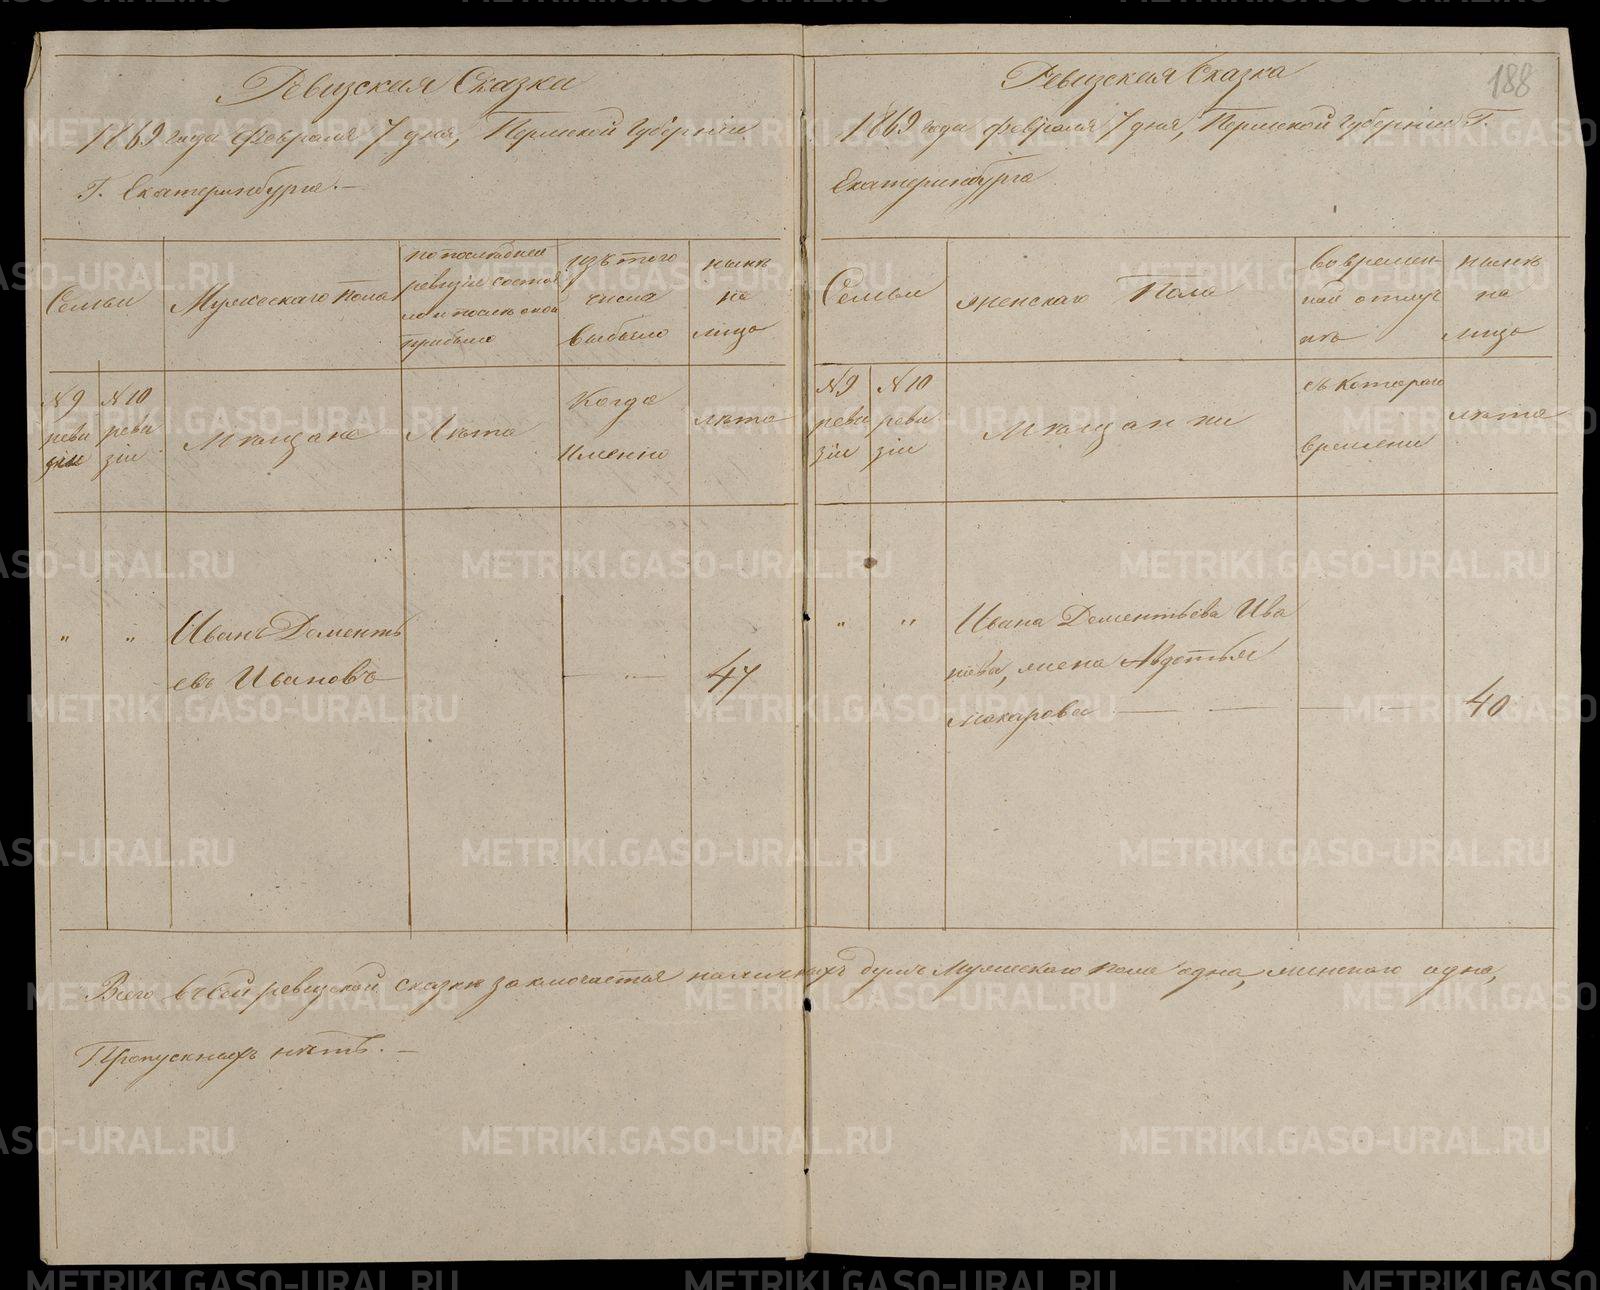 Ревизская Сказка
1869 года Февраля 7 дня, Пермской Губернии
Г. Екатеринбурга.—
Семьи
Мужескаго Пола
по последней
ревизiи состоя
ло и после оной
прибыло
изъ того
числа
выбыло
ныне
на
лицо
№ 9
реви
зiи
№ 10
реви
зiи
Мещане
Лета
Когда
Именно
лета
" " Иванъ Доменть
евъ Ивановъ — " — 47
188
Ревизская Сказка
1869 года Февраля 7 дня, Пермской Губернiи Г.
Екатеринбурга
Семьи
женскаго Пола
во времен
ной отлуч
ке
ныне
на
лицо
№ 9
реви
зiи
№ 10
реви
зiи
Мещанки
съ котораго
времени
лета
" " Ивана Доментьева Ива
нова, жена Авдотья
Макарова — — — 40
Всего въ сей ревизской сказке заключается наличныхъ душъ Мужескаго пола одна, женскаго одна,
Пропускныхъ нетъ. —
METRIKI.GASO-URAL.RU